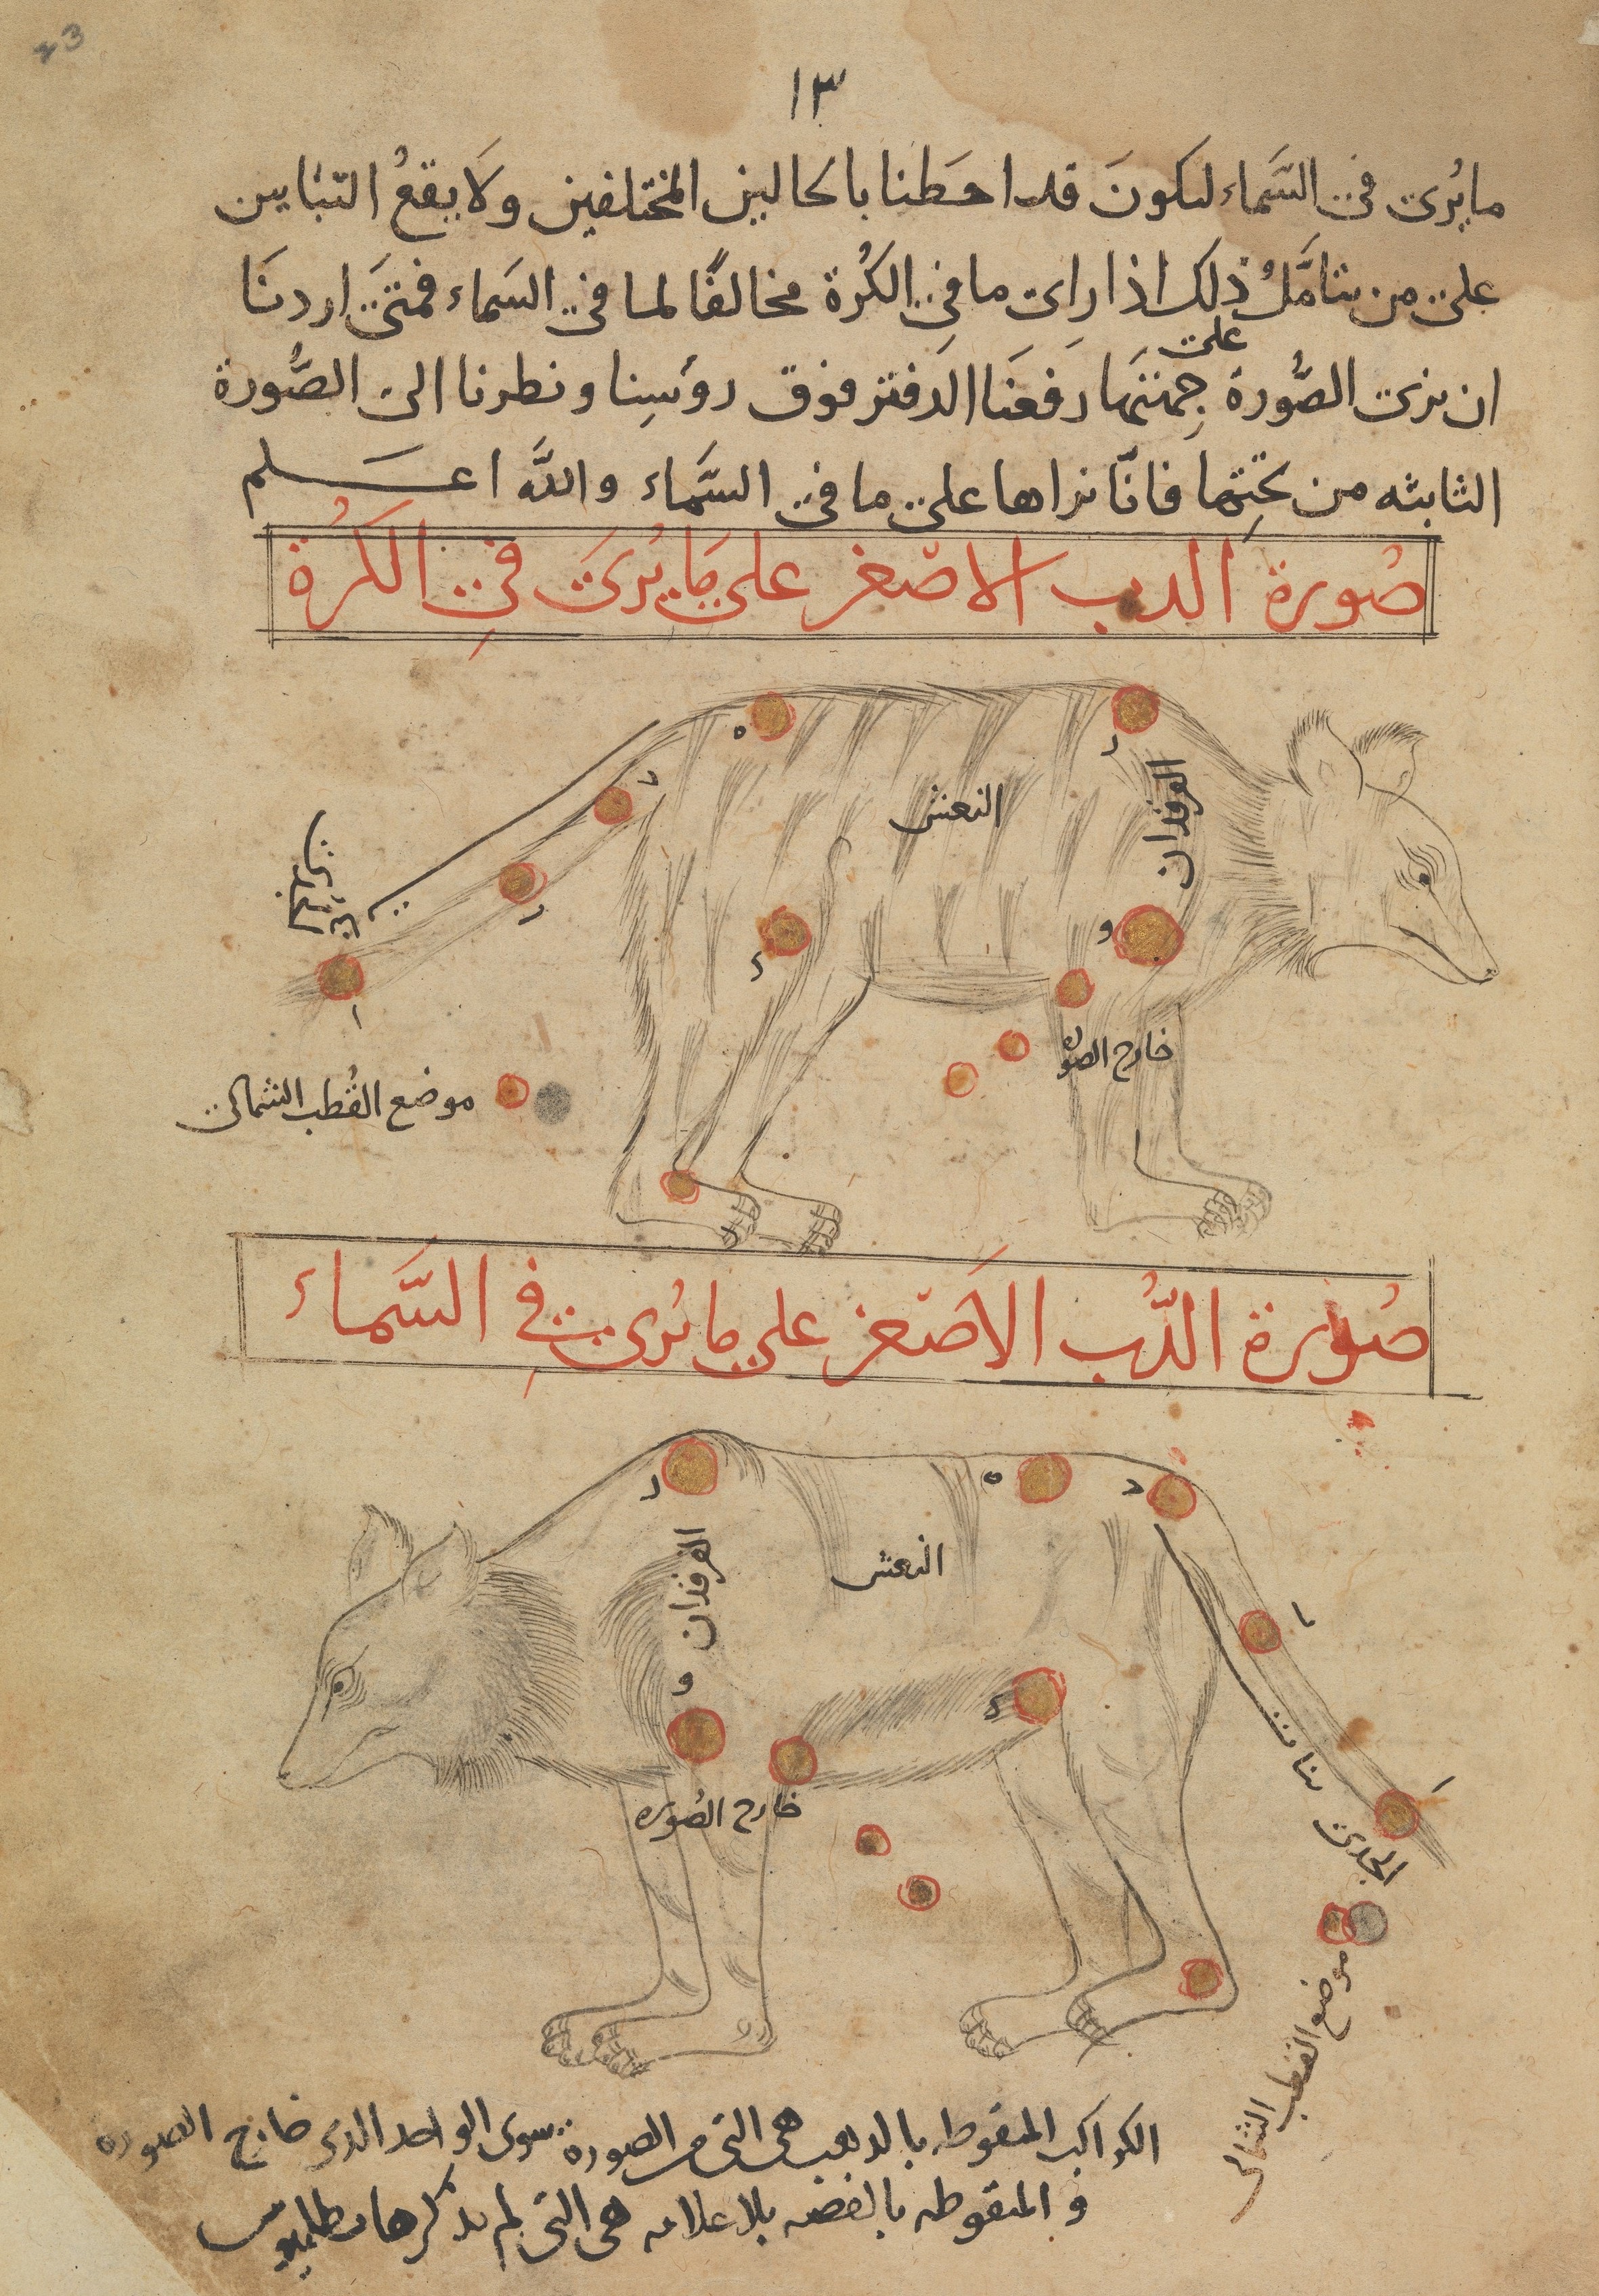 23
١٣
ما يُرى في السَّماء لنكونَ قد احَطنا بالحالين المختلفين ولَا يقعُ التبَاين
على من يتامَّلُ ذلك اذا رَاى ما في الكُرة مخالفًا لما في السَماء فمتَى اردنَا
ان نرى الصُّورة على جهتَها رفعَنَا الدفتر فوق رؤسِنا ونظرنا الى الصُّورة
الثانيه من تحتِها فانّا نراها على ما في السَّماء والله اعلم
صُورة الدب الاصغر على مَا يُرىَ في الكُرة
النعش
الفرقدان
ه
د
و
ا
الجدي
خارج الصوره
موضع القُطب الشمالى
صُورة الدُّب الاَصغر على ما يُرى في السَّماء
ه
د
الفرقدان
النعش
و
خارج الصُوره
ا
بنات
الجدى
موضع القطب الشمالى
الكواكب المنقوطه بالذهب هى التى من الصورة سوى الواحد الذى خارج الصوره
و المنقوطه بالفضه بلا علامه هى التى لم يذكرها بطلميوس